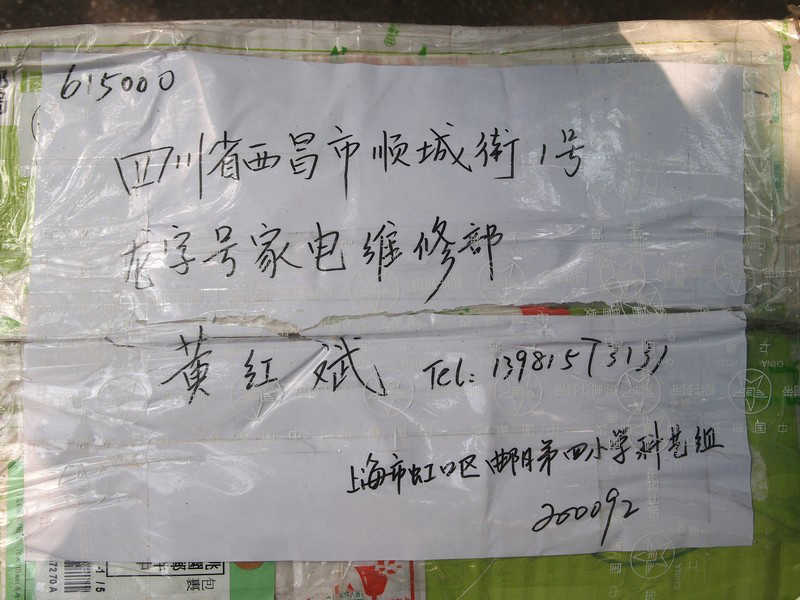 615000
四川省西昌市顺城街1号
龙字号家电维修部
黄红斌 Tel: 13981573131
上海市虹口区曲阳第四小学科艺组
200092
包裹